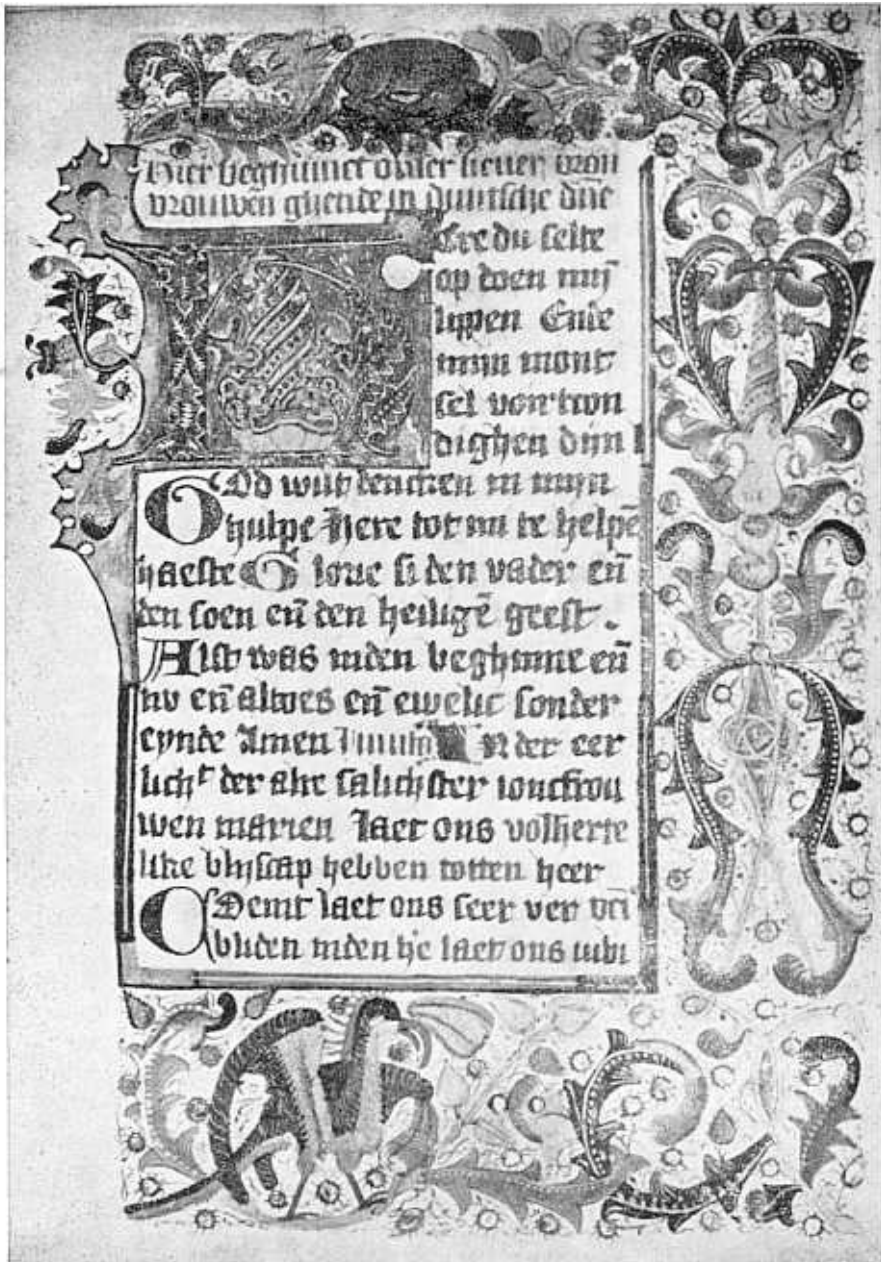 Hier beghinnet onser liever vrou
vrouwen ghetide in duutsche dn̄e
Ere du selte
op doen mij
lippen Ende
mijn mont
sel vorkon
dighen dijn l
God wilt dencken in mijn
hulpe Here tot mi te helpē
haeste Glorie si den vader en̄
den soen en̄ den heiligē geest.
Also was inden beghinne en̄
nv en̄ altoes en̄ ewelic sonder
eynde Amen In der eer
lichͭ der alre salichster ioncfrou
wen marien laet ons volherte
like bliscap hebben totten heer
Coemt laet ons seer ver
bliden inden h̄e laet ons iubi